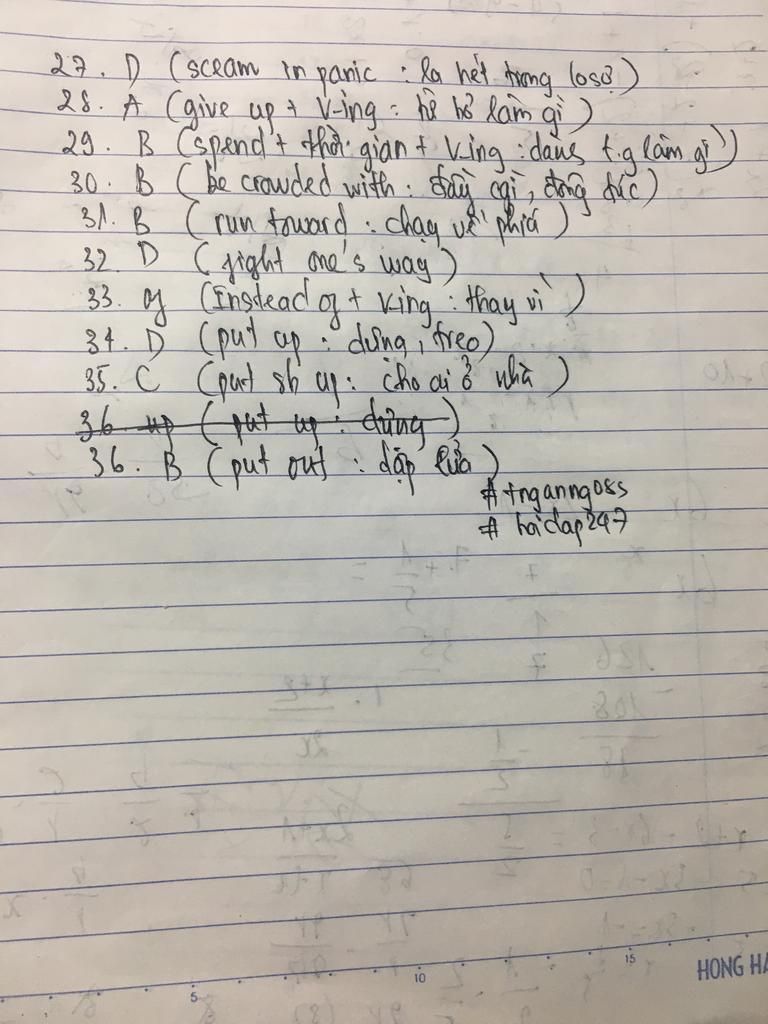 27. D (sceam in panic : la hét trong lo sợ)
28. A (give up + V-ing : từ bỏ làm gì)
29. B (spend + thời gian + V-ing : dành t.g làm gì)
30. B (be crowded with : đầy cái gì, đông đúc)
31. B (run toward : chạy về phía)
32. D (fight one's way)
33. of (Instead of + V-ing : thay vì)
34. D (put up : dựng, treo)
35. C (put sb up : cho ai ở nhà)
36 up (put up : dựng)
36. B (put out : dập lửa)
# tnganng085
# hoidap247
5 10 15
HONG HA